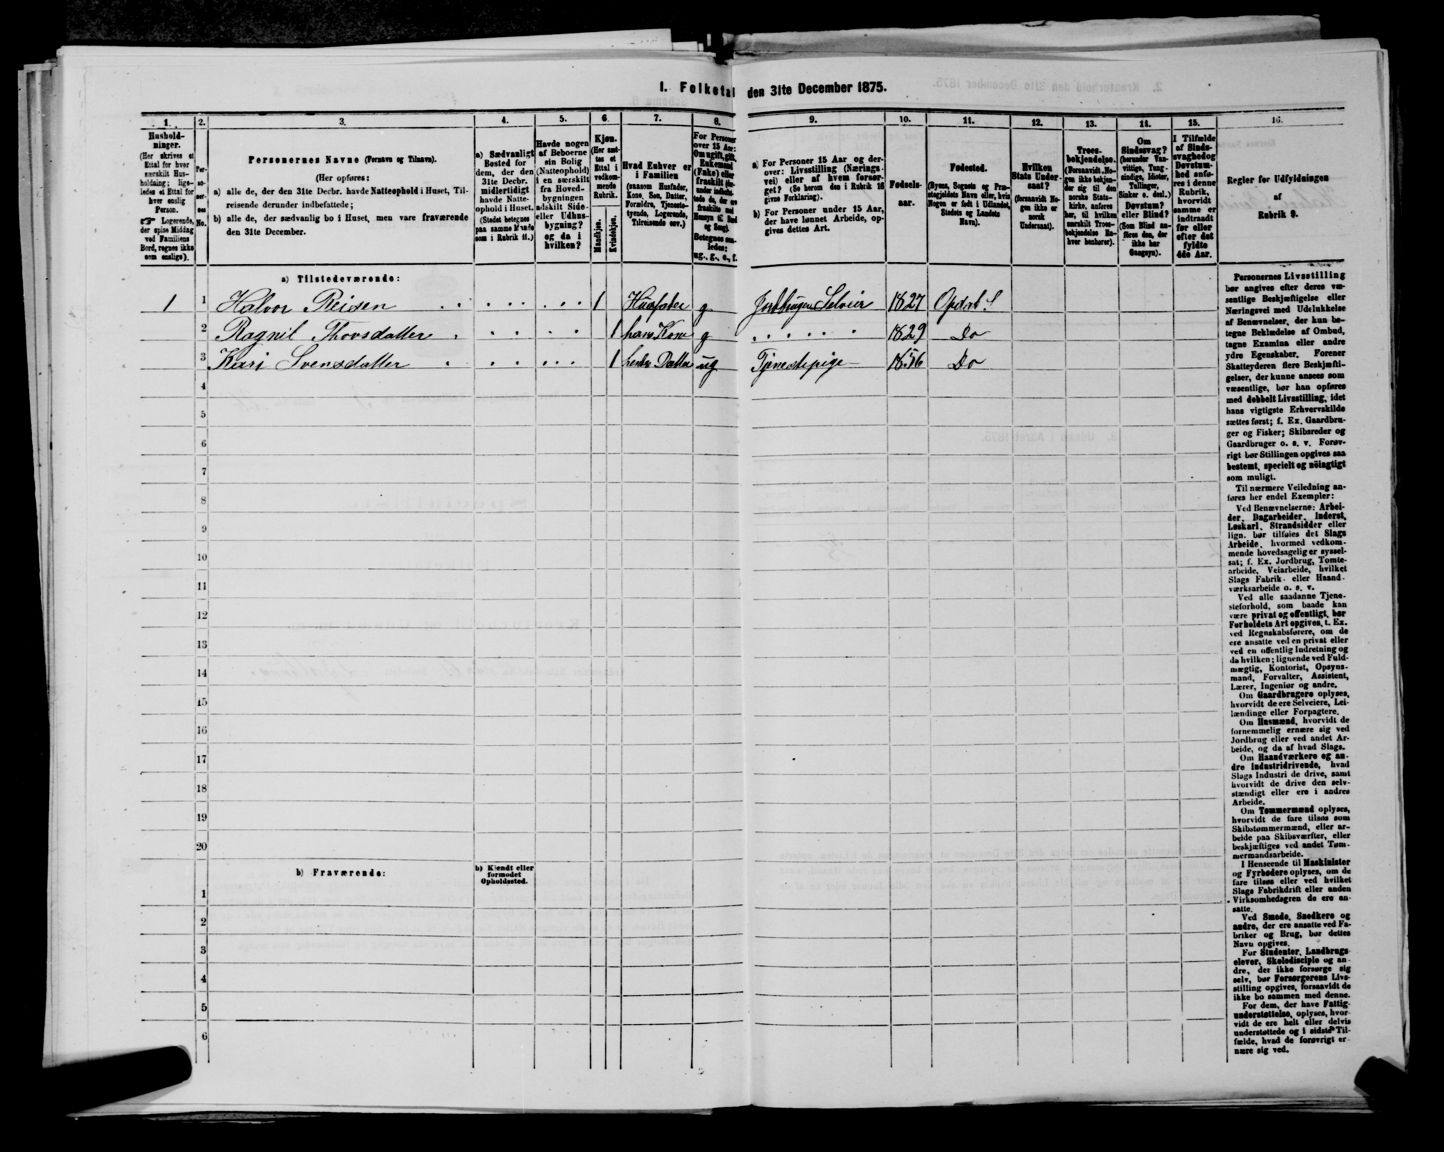 I. Folketal den 31te December 1875.
1. 2. 3. 4. 5. 6. 7. 8. 9. 10. 11. 12. 13. 14. 15. 16.
Hushold-
ninger.
(Her skrives et
Ettal for hver
særskilt Hus-
holdning; lige-
ledes et Ettal for
hver enslig
Person.
☞ Logerende,
der spise Middag
ved Familiens
Bord, regnes ikke
som enslige).
Per-
so-
ner-
nes
No.
Personernes Navne (Fornavn og Tilnavn).
(Her opføres:
a) alle de, der den 31te Decbr. havde Natteophold i Huset, Til-
reisende derunder indbefattede;
b) alle de, der sædvanlig bo i Huset, men vare fraværende
den 31te December.
a) Sædvanligt
Bosted for
dem, der den
31te Decbr.
midlertidigt
havde Natte-
ophold i Huset.
(Stedet betegnes
paa samme Maade
som i Rubrik 11.)
Havde nogen
af Beboerne
sin Bolig
(Natteophold)
i en særskilt
fra Hoved-
bygningen
adskilt Side-
eller Udhus-
bygning?
og da i
hvilken?
Kjøn.
(Her sæt-
tes et
Ettal i
vedkom-
mende
Rubrik.
Mandkjøn.
Kvindekjøn.
Hvad Enhver er
i Familien
(saasom Husfader,
Kone, Søn, Datter,
Forældre, Tjeneste-
tyende, Logerende,
Tilreisende osv.)
a) For Personer 15 Aar og der-
over: Livsstilling (Nærings-
vei) eller af hvem forsør-
get? (Se herom den i Rubrik 16
givne Forklaring).
b) For Personer under 15 Aar,
der have lønnet Arbeide, op-
gives dettes Art.
Fødsels-
aar.
Fødested.
(Byens, Sognets og Præ-
stegjeldets Navn eller, hvis
Nogen er født i Udlandet,
Stedets og Landets
Navn).
Hvilken
Stats Under-
saat?
(forsaavidt No-
gen ikke er
norsk
Undersaat).
Troes-
bekjendelse.
(Forsaavidt No-
gen ikke bekjen-
der sig til den
norske Stats-
kirke, anføres
her, til hvilken
særskilt Troes-
bekjendelse En-
hver henhører).
Om
Sindssvag?
(herunder Van-
vittige, Tung-
sindige, Idioter,
Tullinger,
Sinker o. desl.)
Døvstum?
eller Blind?
(Som Blind an-
føres den, der
ikke har
Gangsyn).
I Tilfælde
af Sinds-
svaghed og
Døvstum-
hed anfø-
res i denne
Rubrik,
hvorvidt
samme er
indtraadt
før eller
efter det
fyldte
4de Aar.
Regler for Udfyldningen
af
Rubrik 9.
a) Tilstedeværende:
1 1 Halvor Reisen 1 Husfader g Jordbruger Selveier 1827 Opdal S.
2 Ragnil Thorsdatter 1 hans Kone g 1829 Do
3 Kari Svensdatter 1 hendes Datter ug Tjenestepige 1856 Do
4
5
6
7
8
9
10
11
12
13
14
15
16
17
18
19
20
b) Fraværende:
b) Kjendt eller
formodet
Opholdssted.
1
2
3
4
5
6
Personernes Livsstilling
bør angives efter deres væ-
sentlige Beskjæftigelse eller
Næringsvei med Udelukkelse
af Benævnelser, der kun be-
tegne Beklædelse af Ombud,
tagne Examina eller andre
ydre Egenskaber. Forener
Skatteyderen flere Beskjæfti-
gelser, der kunne ansees som
væsentlige, bør han opføres
med dobbelt Livsstilling, idet
hans vigtigste Erhvervskilde
sættes først; f. Ex. Gaardbru-
ger og Fisker; Skibsreder og
Gaardbruger o. s. v. Forøv-
rigt bør Stillingen opgives saa
bestemt, specielt og nöiagtigt
som muligt.
Til nærmere Veiledning an-
føres her endel Exempler:
Ved Benævnelserne: Arbei-
der, Dagarbeider, Inderst,
Løskarl, Strandsidder eller
lign. bør tilføies det Slags
Arbeide, hvormed vedkom-
mende hovedsagelig er syssel-
sat; f. Ex. Jordbrug, Tomte-
arbeide, Veiarbeide, hvilket
Slags Fabrik- eller Haand-
værksarbeide o. s. v.
Ved alle saadanne Tjene-
steforhold, som baade kan
være privat og offentligt, bør
Forholdets Art opgives, t. Ex.
ved Regnskabsførere, om de
ere ansatte ved en privat eller
ved en offentlig Indretning og
da hvilken; lignende ved Fuld-
mægtig, Kontorist, Opsyns-
mand, Forvalter, Assistent,
Lærer, Ingeniør og andre.
Om Gaardbrugere oplyses,
hvorvidt de ere Selveiere, Lei-
lændinge eller Forpagtere.
Om Husmænd, hvorvidt de
fornemmelig ernære sig ved
Jordbrug eller ved andet Ar-
beide, og da af hvad Slags.
Om Haandværkere og an-
dre industridrivende, hvad
Slags Industri de drive, samt
hvorvidt de drive den selv-
stændigt eller ere i andres
Arbeide.
Om Tømmermænd oplyses,
hvorvidt de fare tilsøs som
Skibstømmermænd, eller ar-
beide paa Skibsværfter, eller
beskjæftiges ved andet Tøm-
mermandsarbeide.
I Henseende til Maskinister
og Fyrbødere oplyses, om de
fare tilsøs eller ved hvilket
Slags Fabrikdrift eller anden
Virksomhedsgren de ere an-
satte.
Ved Smede, Snedkere og
andre, der ere ansatte ved Fa-
briker og Brug, bør dettes
Navn opgives.
For Studenter, Landbrugs-
elever, Skoledisciple og an-
dre, der ikke forsørge sig
selv, bør Forsørgerens Livs-
stilling opgives, forsaavidt de
ikke bo sammen med denne.
For dem, der have Fattig-
understøttelse, oplyses, hvor-
vidt de ere helt eller delvis
understøttede og i sidste Til-
fælde, hvad de forøvrigt er-
nære sig ved.